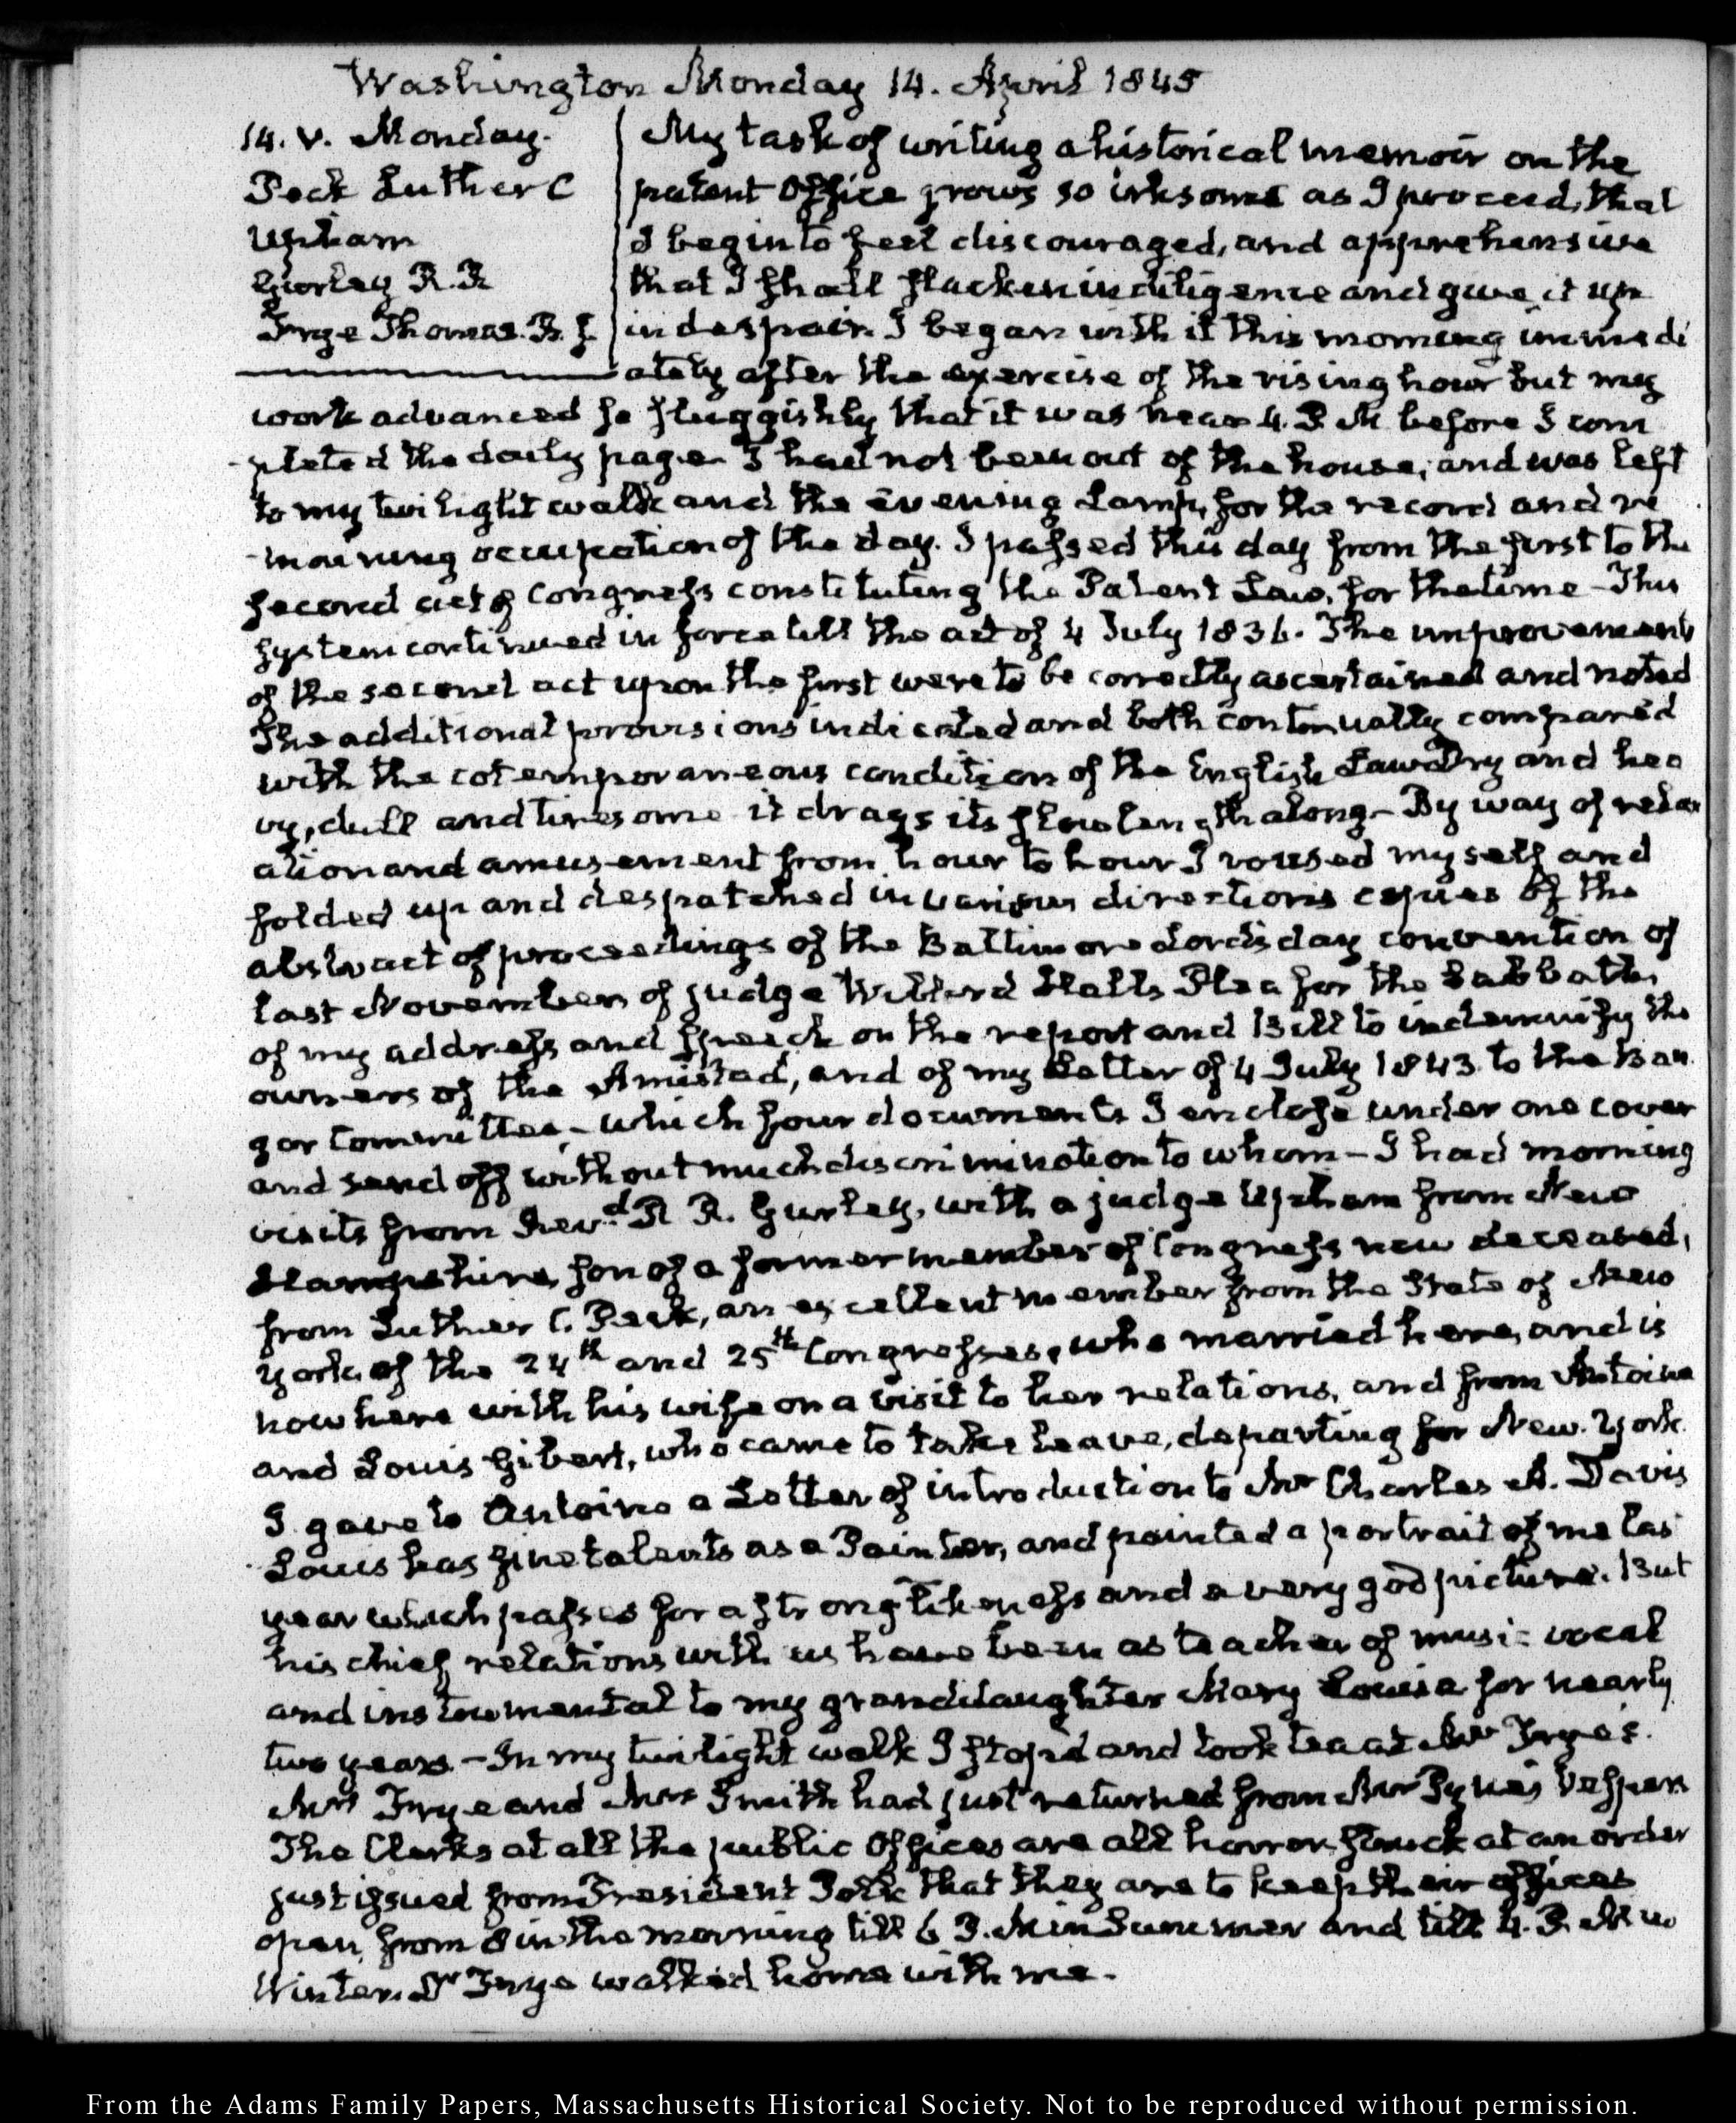 Washington Monday 14. April 1845
14. V. Monday.
Peck Luther C
Upham
Gurley R. R
Frye Thomas. B. J.
My task of writing a historical memoir on the
patent Office grows so irksome as I proceed, that
I begin to feel discouraged, and apprehensive
that I shall slacken in diligence and give it up
in despair. I began with it this morning immedi
ately after the exercise of the rising hour but my
work advanced so sluggishly that it was near 4. P. M. before I com
-pleted the daily page. I had not been out of the house, and was left
to my twilight walk and the evening Lamp, for the record and re
-maining occupation of the day. I passed this day from the first to the
second act of Congress constituting the Patent Law, for the time - This
system continued in force till the act of 4 July 1836. The improvements
of the second act upon the first were to be correctly ascertained and noted
The additional provisions indicated and both continually compared
with the cotemporaneous condition of the English Law. Dry and hea
vy, dull and tiresome it drags its slow length along - By way of relax
ation and amusement from hour to hour I roused myself and
folded up and despatched in various directions copies of the
abstract of proceedings of the Baltimore Lord's day convention of
last November, of judge Willard Hall's Plea for the Sabbath,
of my address and speech on the report and Bill to indemnify the
owners of the Amistad, and of my Letter of 4 July 1843. to the Ban
gor Committee - which four documents I enclose under one cover
and send off without much discrimination to whom - I had morning
visits from Revd. R R. Gurley, with a judge Upham from New
Hampshire, son of a former member of Congress now deceased,
from Luther C. Peck, an excellent member from the State of New
York, of the 24th and 25th Congresses, who married here, and is
now here with his wife on a visit to her relations, and from Antoine
and Louis Gibert, who came to take leave, departing for New. York.
I gave to Antoine a Letter of introduction to Mr Charles A. Davis
Louis has fine talents as a Painter, and painted a portrait of me las
year which passes for a strong likeness and a very good picture. But
his chief relations with us have been as teacher of music vocal
and instrumental to my granddaughter Mary Louisa for nearly
two years. - In my twilight walk I stop'd and took tea at Mr Frye's.
Mrs Frye and Mrs Smith had just returned from Mr Pyne's Vespers
The Clerks at all the public Offices are all horror struck at an order
just issued from President Polk that they are to keep their offices
open from 8 in the morning till 6 P. M in Summer and till 4. P. M in
Winter. Mr Frye walked home with me.
From the Adams Family Papers, Massachusetts Historical Society. Not to be reproduced without permission.